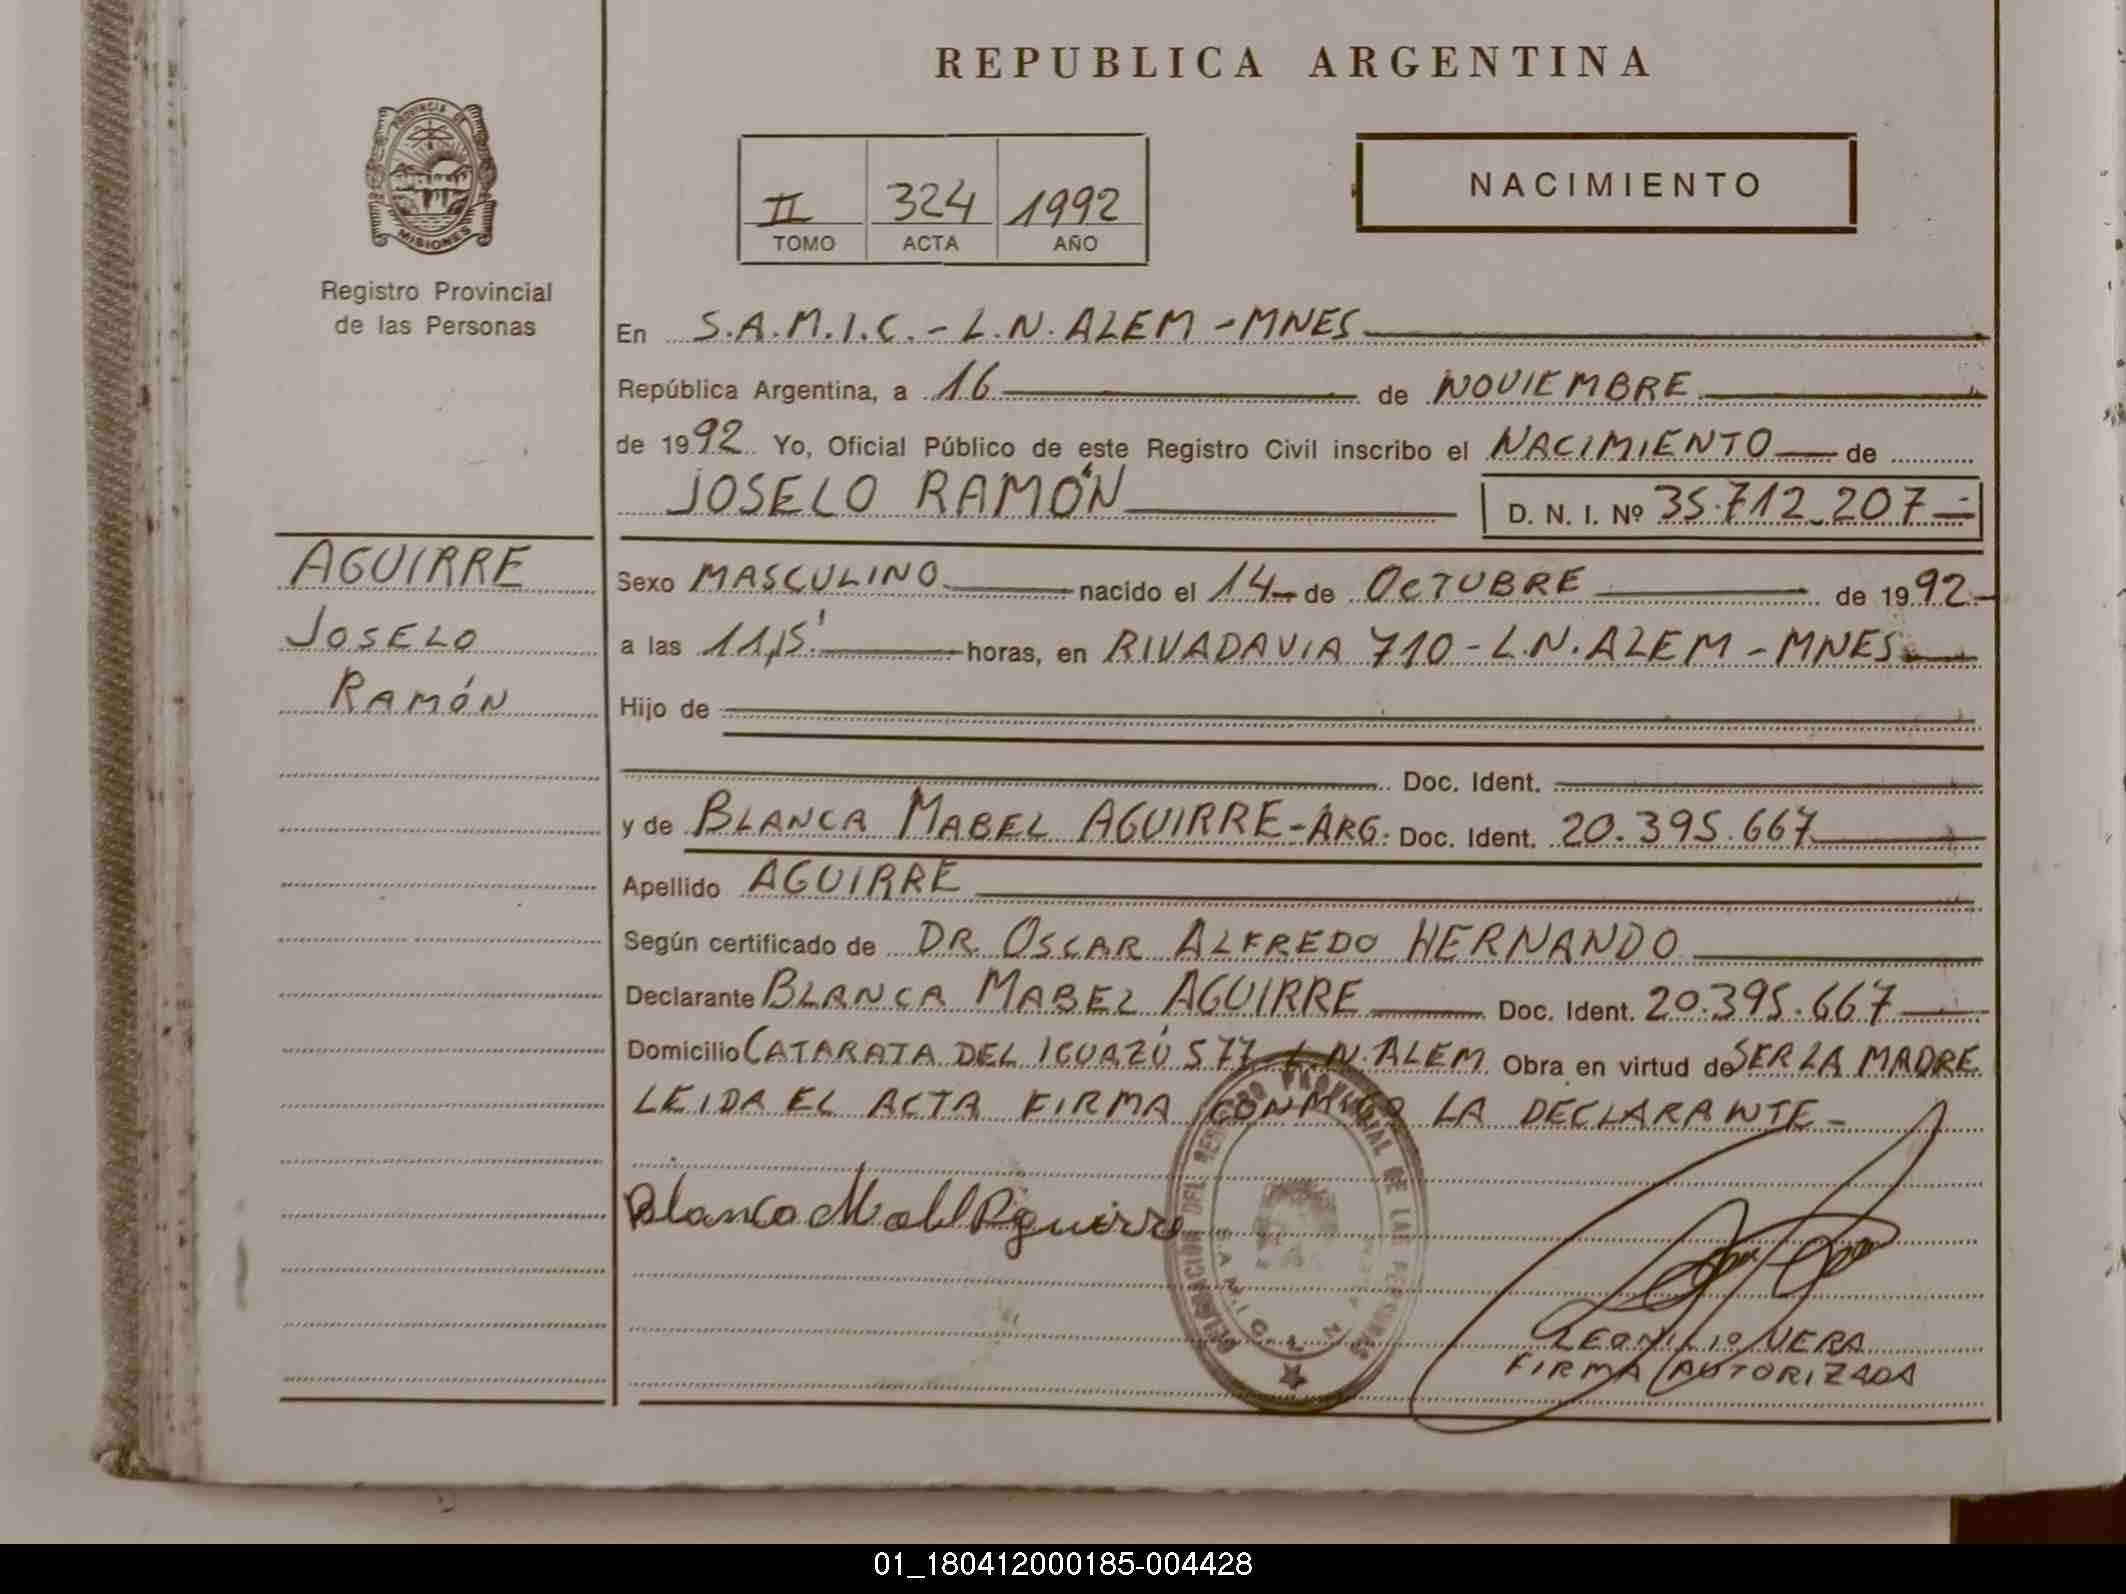 REPUBLICA ARGENTINA
PROVINCIA DE
MISIONES
Registro Provincial
de las Personas
II 324 1992
TOMO ACTA AÑO
NACIMIENTO
En S.A.M.I.C. - L.N. ALEM - MNES
República Argentina, a 16 de NOVIEMBRE
de 1992 Yo, Oficial Público de este Registro Civil inscribo el NACIMIENTO de
JOSELO RAMÓN D. N. I. Nº 35.712.207
AGUIRRE
JOSELO
RAMÓN
Sexo MASCULINO nacido el 14 de OCTUBRE de 1992
a las 11,15' horas, en RIVADAVIA 710 - L.N. ALEM - MNES
Hijo de
Doc. Ident.
y de BLANCA MABEL AGUIRRE - ARG. Doc. Ident. 20.395.667
Apellido AGUIRRE
Según certificado de DR. OSCAR ALFREDO HERNANDO
Declarante BLANCA MABEL AGUIRRE Doc. Ident. 20.395.667
Domicilio CATARATA DEL IGUAZÚ 577 L.N. ALEM Obra en virtud de SER LA MADRE
LEIDA EL ACTA FIRMA CONMIGO LA DECLARANTE -
Blanca Mabel Aguirre
DELEGACION DEL REGISTRO PROVINCIAL DE LAS PERSONAS
LEONILIO VERA
FIRMA AUTORIZADA
01_180412000185-004428